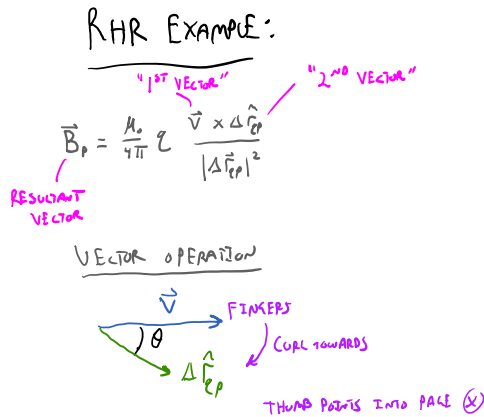 RHR EXAMPLE:
"1ST VECTOR"
"2ND VECTOR"
B⃗p = μ₀/4π q (v⃗ × Δr̂qp)/|Δr⃗qp|²
RESULTANT
VECTOR
VECTOR OPERATION
v⃗
FINGERS
θ
CURL TOWARDS
Δr̂qp
THUMB POINTS INTO PAGE ⓧ